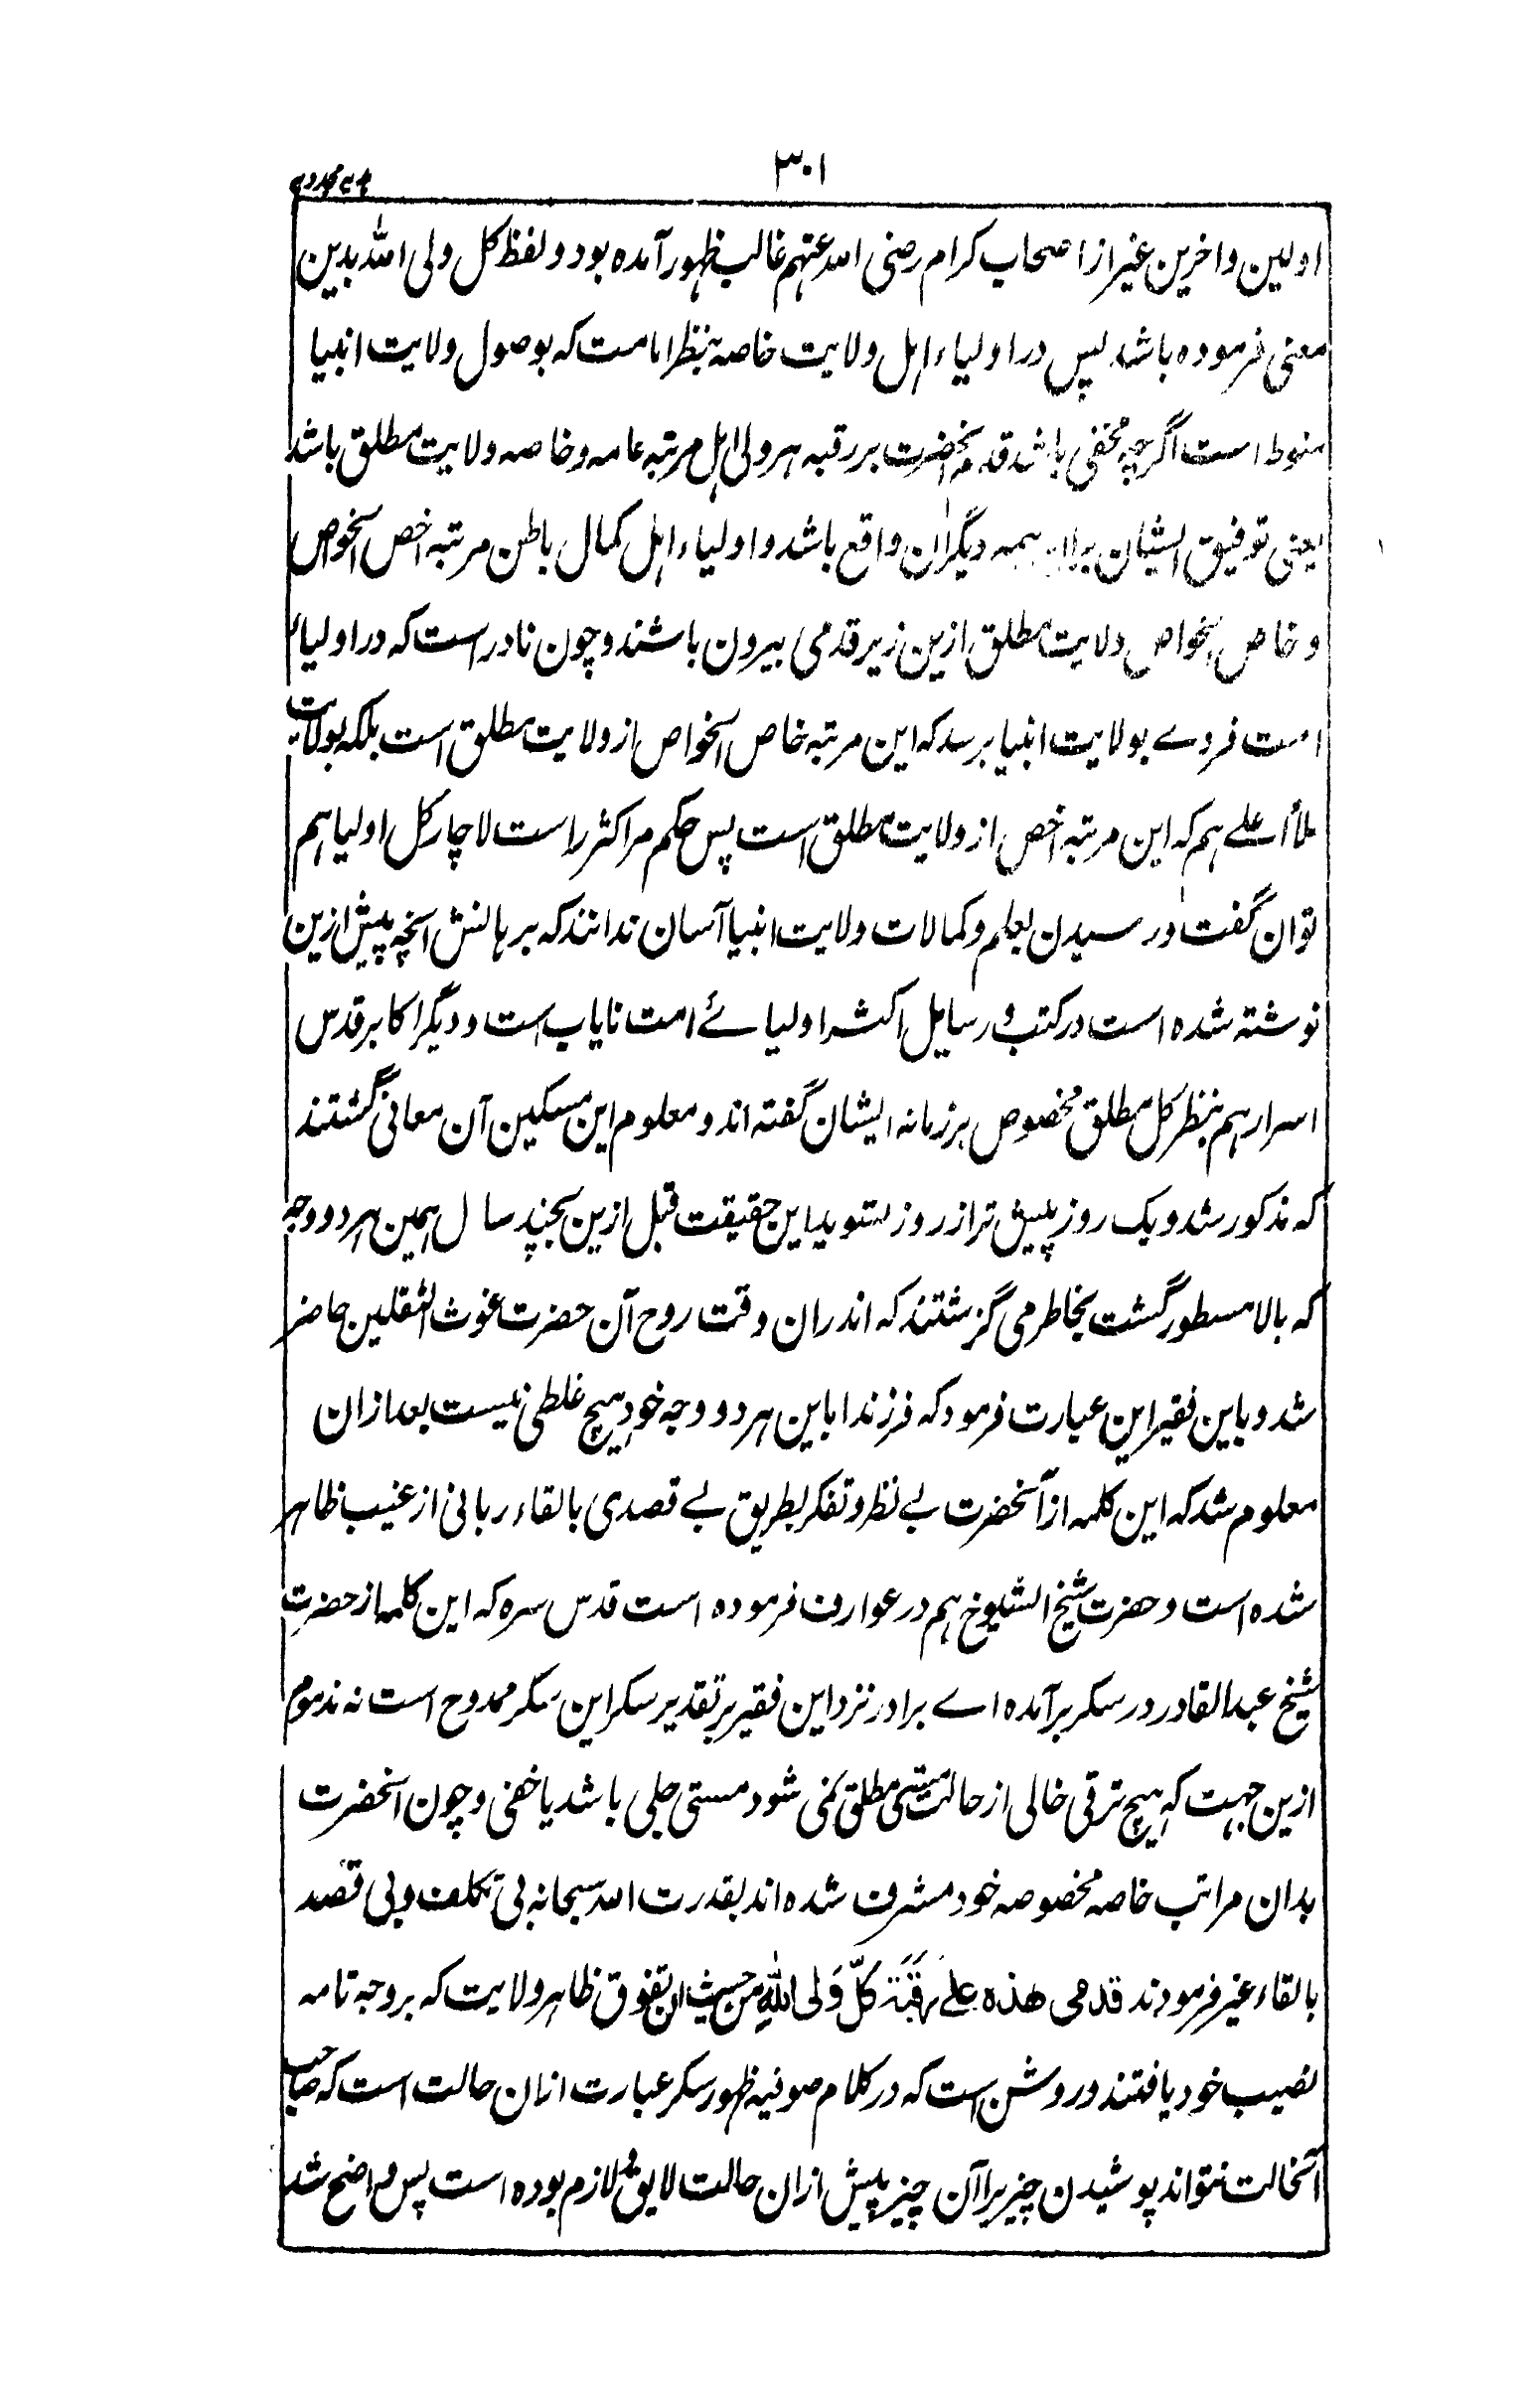 ۳۰۱
اولین واخرین غیر از اصحاب کرام رضی الله عنهم غالب ظهور آمده بود و لفظ کل ولی الله بدین
معنی فرموده باشد پس در اولیاء اهل ولایت خاصه بنظر امامت که بوصول ولایت انبیا
منوط است اگرچه مخفی باشد قدم آنحضرت بر رقبه هر ولی اهل مرتبه عامه و خاصه ولایت مطلق باشد
یعنی توفیق ایشان بر همه دیگران واقع باشد و اولیاء اهل کمال باطن مرتبه اخص الخواص
و خاص الخواص ولایت مطلق ازین زیر قدمی بیرون باشند و چون نادر است که در اولیاء
امت فردے بولایت انبیا برسد که این مرتبه خاص الخواص از ولایت مطلق است بلکه بولایت
ملأ اعلے هم که این مرتبه اخص از ولایت مطلق است پس حکم مر اکثر راست لاچار کل اولیا هم
توان گفت و رسیدن بعلم و کمالات ولایت انبیا آسان ندانند که برهانش آنچه پیش ازین
نوشته شده است در کتب و رسایل اکثر اولیائے امت نایاب است و دیگر اکابر قدس
اسرارهم بنظر کل مطلق مخصوص بر زمانه ایشان گفته اند و معلوم این مسکین آن معانی گشتند
که مذکور شد و یک روز پیش تر از روز تسوید این حقیقت قبل ازین بچند سال همین هر دو وجه
که بالا مسطور گشت بخاطر می گزشتند که اندران وقت روح آن حضرت غوث الثقلین حاضر
شد و باین فقیر این عبارت فرمود که فرزندا باین هر دو وجه خود هیچ غلطی نیست بعد ازان
معلوم شد که این کلمه از آنحضرت بے نظر و تفکر بطریق بے قصدی بالقاء ربانی از غیب ظاهر
شده است و حضرت شیخ الشیوخ هم در عوارف فرموده است قدس سره که این کلمه از حضرت
شیخ عبدالقادر در سکر برآمده اے برادر نزد این فقیر بر تقدیر سکر این سکر ممدوح است نه مذموم
ازین جهت که هیچ ترقی خالی از حالت مستی مطلق نمی شود مستی جلی باشد یا خفی و چون آنحضرت
بدان مراتب خاصه مخصوصه خود مشرف شده اند بقدرت الله سبحانه بی تکلف و بی قصد
بالقاء غیر فرمودند قدمی هذه علے رقبة کل ولی الله من حیث ان تفوق ظاهر ولایت که بر وجه تامه
نصیب خود یافتند و روشن است که در کلام صوفیه ظهور سکر عبارت ازان حالت است که صاحب
آنحالت نتواند پوشیدن چیزیرا آن چیز پیش ازان حالت لایق و لازم بوده است پس واضح شد